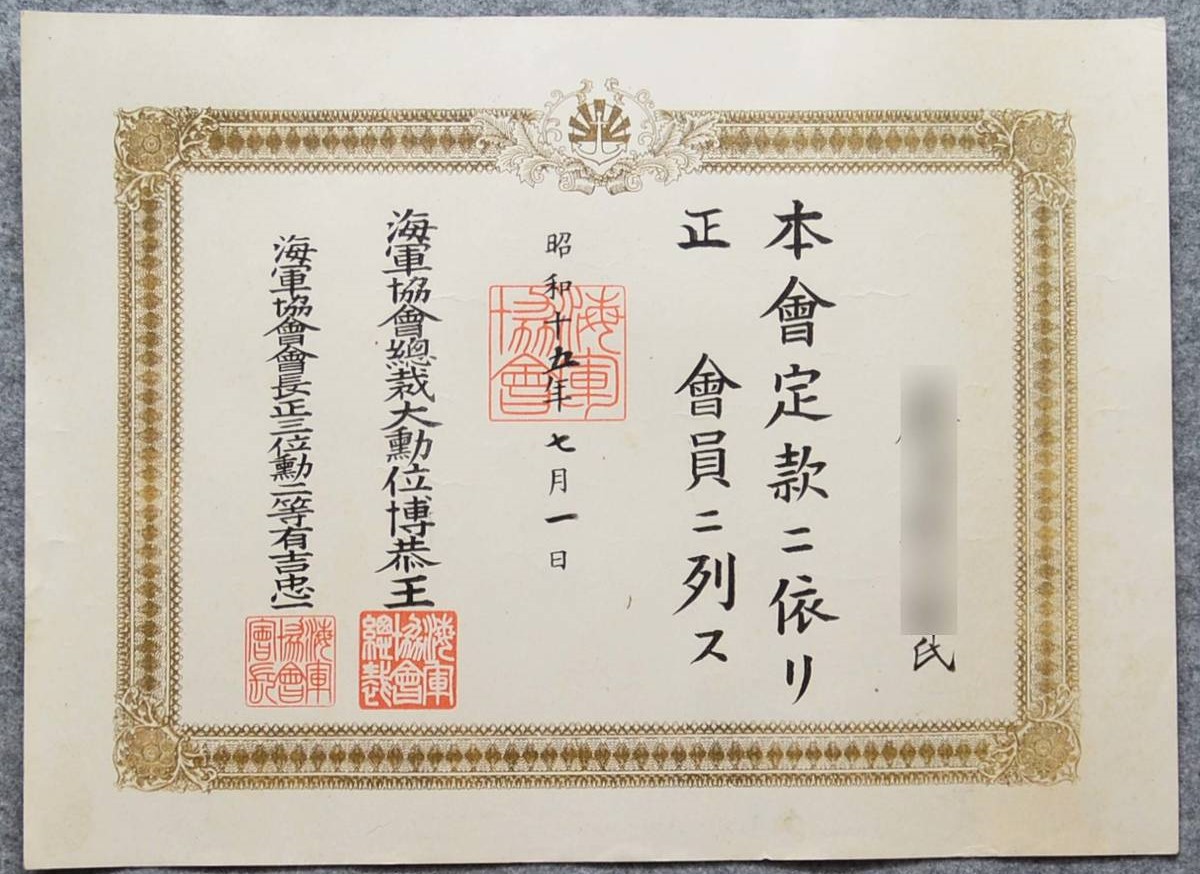 氏
本會定款ニ依リ
正會員ニ列ス
昭和十五年七月一日
海軍協會
海軍協會總裁大勳位博恭王
海軍協會總裁
海軍協會會長正三位勳二等有吉忠一
海軍協會會長